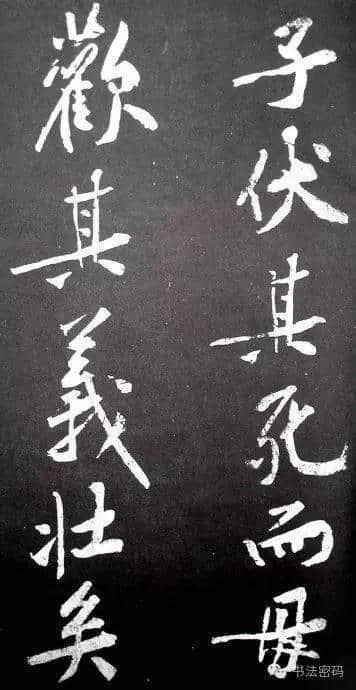 子伏其死而毋
歡其義壯矣
书法密码